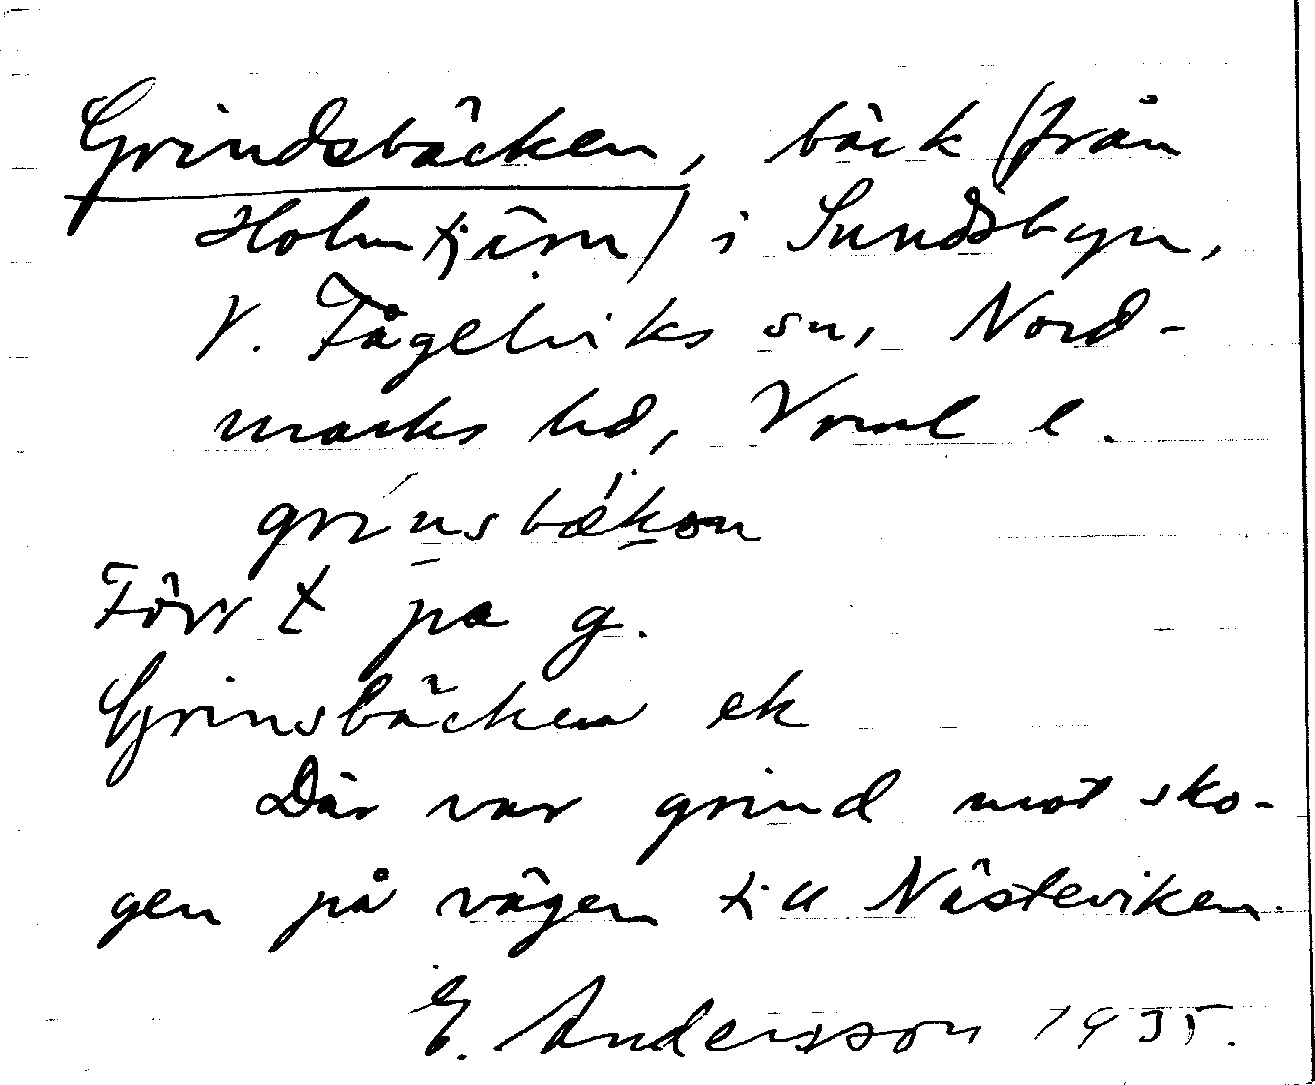 Grindsbäcken, bäck (från
Holmtjärn) i Sundsbyn,
V. Fågelviks sn, Nord-
marks hd, Vrml l.
grinsbækon
Förr t på g.
Grinsbäcken ek
Där var grind mot sko-
gen på vägen till Nästeviken.
E. Andersson 1935.